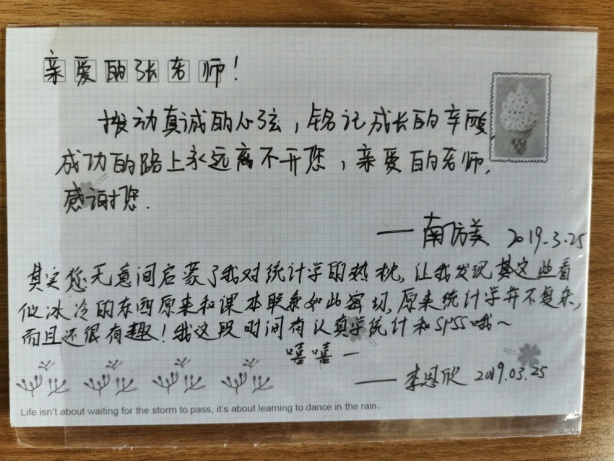 亲爱的张老师！
拨动真诚的心弦，铭记成长的辛酸，
成功的路上永远离不开您，亲爱的老师，
感谢您.
——南访美 2019.3.25
其实您无意间启蒙了我对统计学的热忱，让我发现其实这些看
似冰冷的东西原来和课本联系如此密切，原来统计学并不复杂，
而且还很有趣！我这段时间有认真学统计和SPSS哦～
嘻嘻一
——李思欣 2019.03.25
Life isn't about waiting for the storm to pass, it's about learning to dance in the rain.